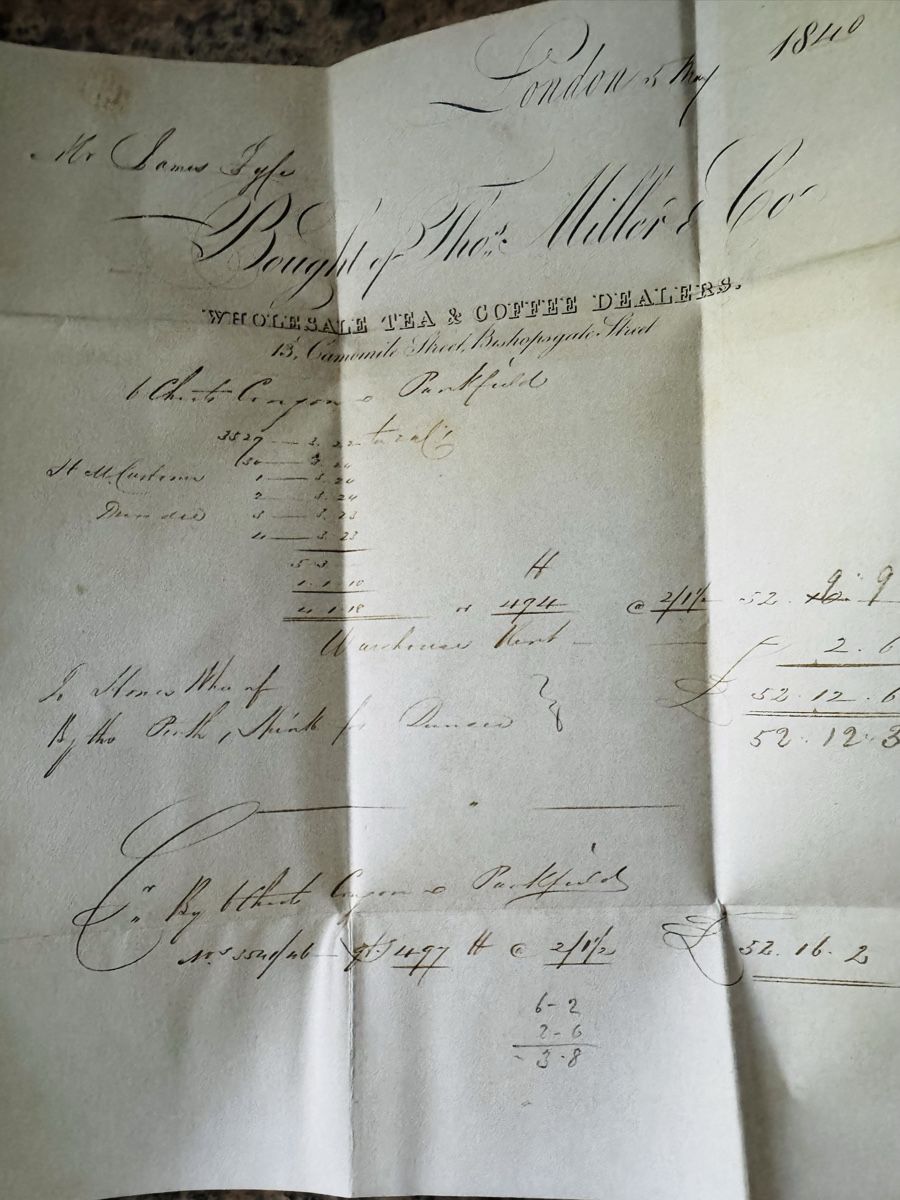 London 5 May 1840
Mr James Fyfe
Bought of Thos. Miller & Co
WHOLESALE TEA & COFFEE DEALERS.
13, Camomile Street, Bishopsgate Street
6 Chests Congou Parkfield
3529 — 3. 22
30 — 3. 24
1 — 3. 24
2 — 3. 24
Dundee 3 — 3. 23
4 — 3. 23
5 3
1. 1. 10
4. 1. 18 or 494 @ 2/1½ 52. 9. 9
Warehouse Rent — 2. 6
£ 52. 12. 6
52. 12. 3
By the Perth, for Dundee
Cr. By 6 Chests Congou Parkfield
Nos 3541/46 — 497 @ 2/1½ £ 52. 16. 2
6-2
2-6
3-8